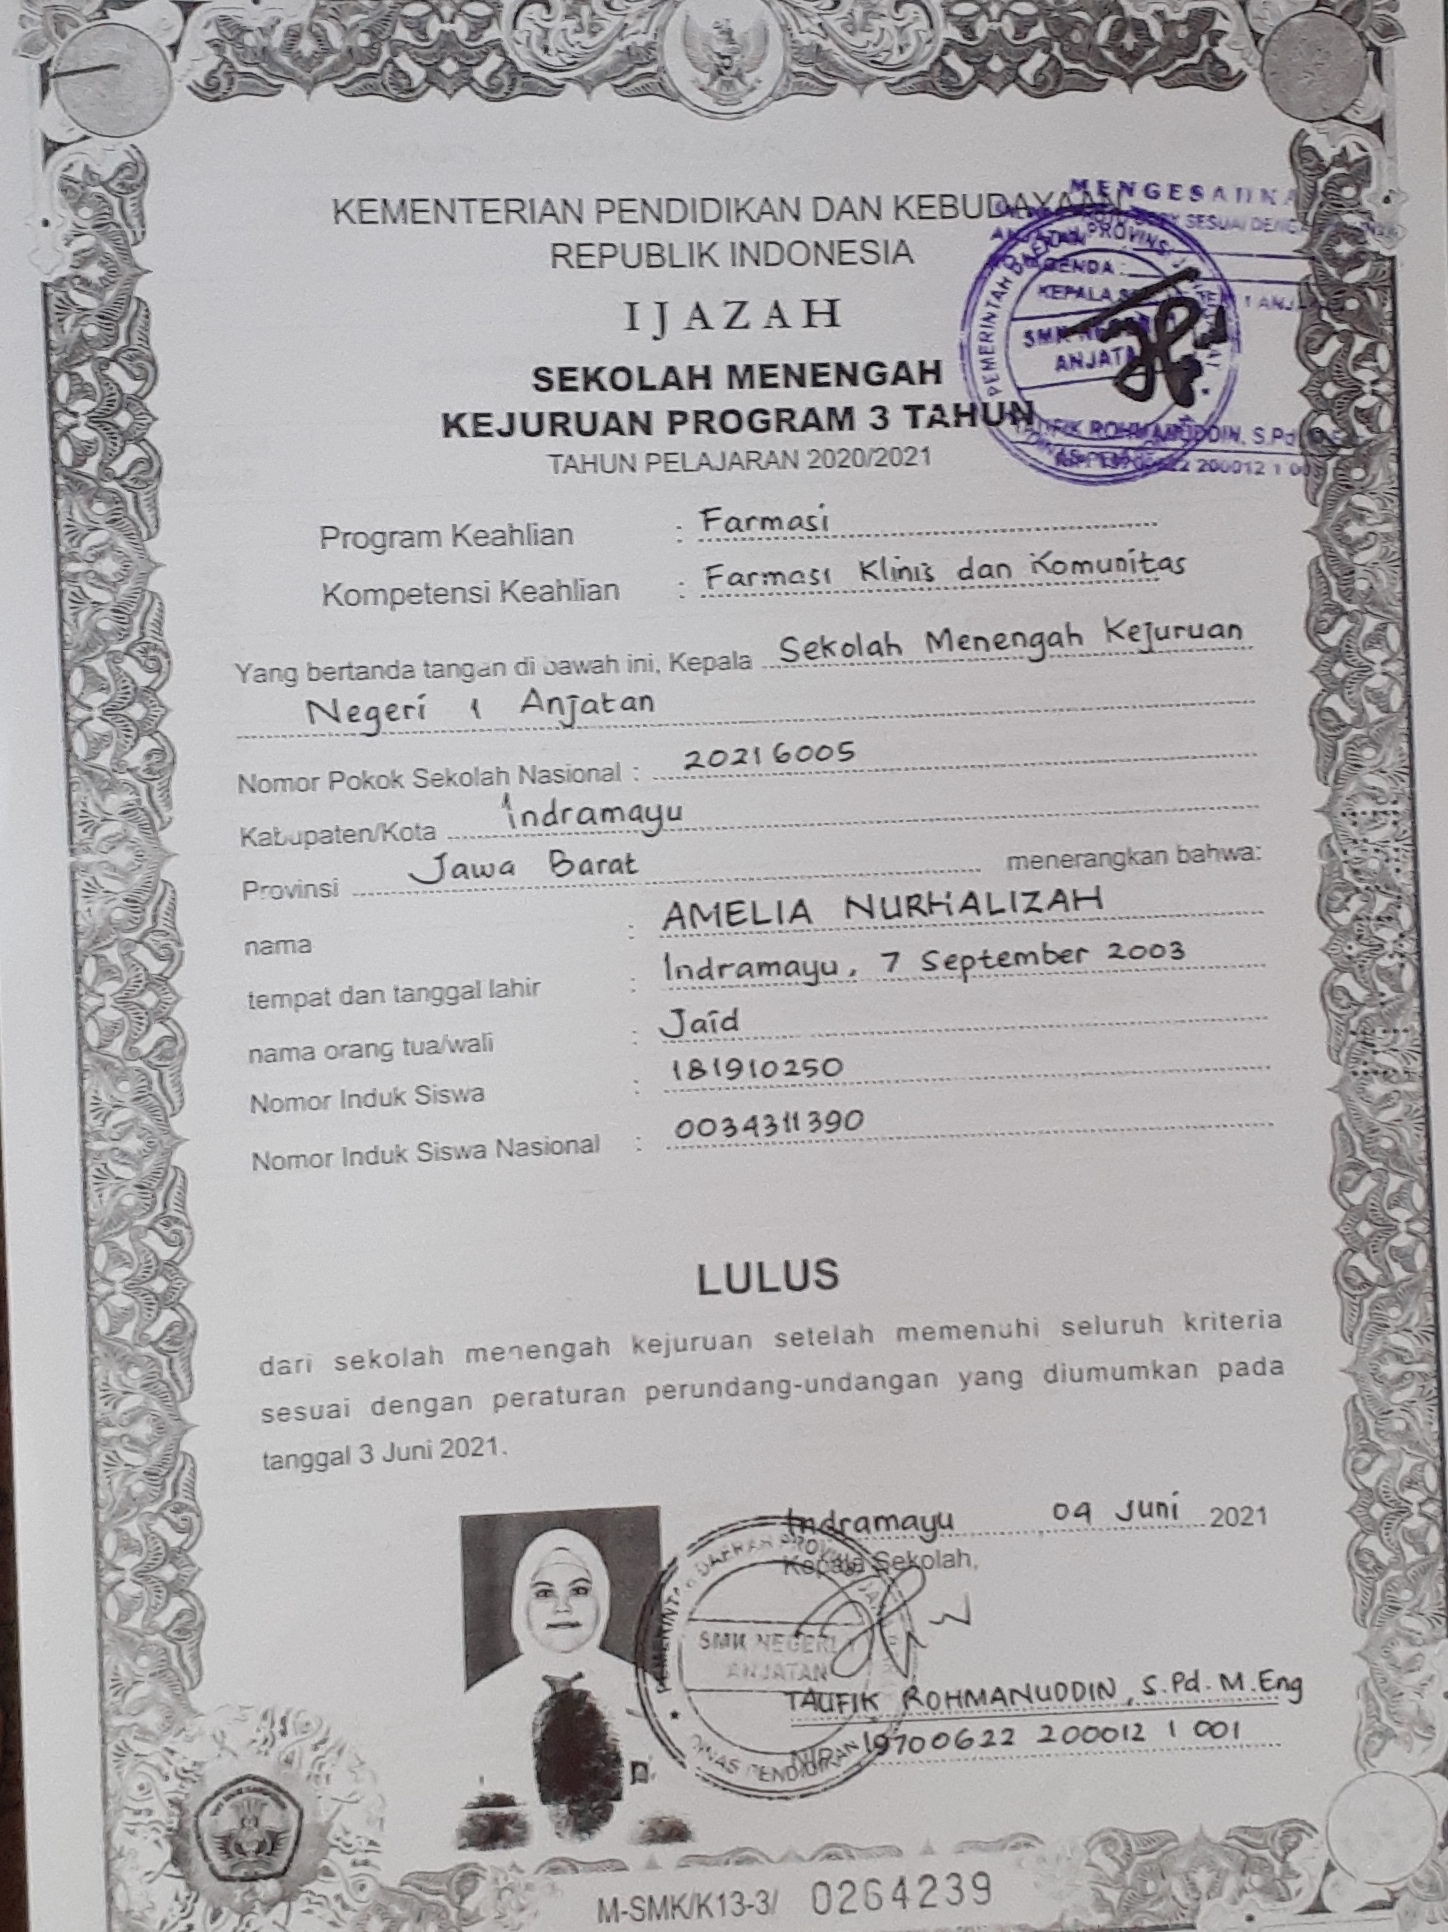 KEMENTERIAN PENDIDIKAN DAN KEBUDAYAAN
REPUBLIK INDONESIA
IJAZAH
SEKOLAH MENENGAH
KEJURUAN PROGRAM 3 TAHUN
TAHUN PELAJARAN 2020/2021
MENGESAHKA
SESUAI DENGA
AGENDA :
KEPALA
1 ANJ
PEMERINTAH DAERAH PROVINSI
SMK NEGERI
ANJATA
TAUFIK ROHMANUDDIN, S.Pd
200012 1 00
Program Keahlian : Farmasi
Kompetensi Keahlian : Farmasi Klinis dan Komunitas
Yang bertanda tangan di bawah ini, Kepala Sekolah Menengah Kejuruan
Negeri 1 Anjatan
Nomor Pokok Sekolah Nasional : 20216005
Kabupaten/Kota Indramayu
Provinsi Jawa Barat menerangkan bahwa:
nama : AMELIA NURHALIZAH
tempat dan tanggal lahir : Indramayu, 7 September 2003
nama orang tua/wali : Jaid
Nomor Induk Siswa : 181910250
Nomor Induk Siswa Nasional : 0034311390
LULUS
dari sekolah menengah kejuruan setelah memenuhi seluruh kriteria
sesuai dengan peraturan perundang-undangan yang diumumkan pada
tanggal 3 Juni 2021.
Indramayu 04 Juni 2021
Kepala Sekolah,
PEMERINTAH DAERAH PROVINSI JAWA
SMK NEGERI 1
ANJATAN
DINAS PENDIDIKAN
TAUFIK ROHMANUDDIN, S.Pd. M.Eng
NIP. 19700622 200012 1 001
M-SMK/K13-3/ 0264239